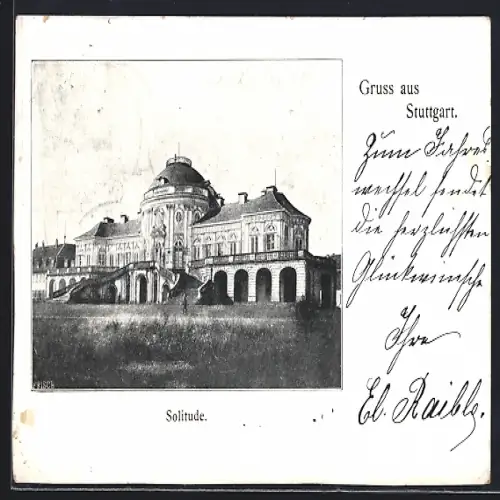 Gruss aus
Stuttgart.
Zum Jahres
wechsel sendet
die herzlichsten
Glückwünsche
Ihre
El. Raible.
Solitude.